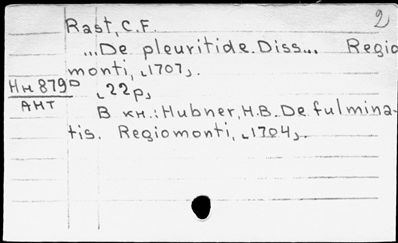 2
Rast, C.F.
...De pleuritide. Diss... Regio
monti, ˻1707˼.
Нн 879º ˻22p˼
АНТ
В кн.: Hubner, H.B. De fulmina-
tis. Regiomonti, ˻1704˼.